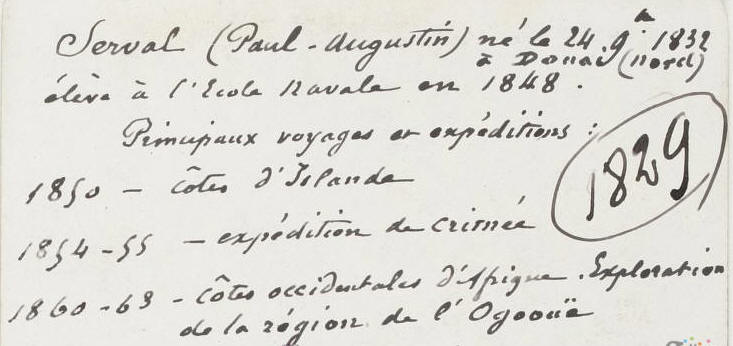 Serval (Paul-Augustin) né le 24 9bre 1832
à Douai (Nord)
élève à l'Ecole Navale en 1848.
Principaux voyages et expéditions :
1829
1850 – côtes d'Islande
1854-55 – expédition de Crimée
1860-63 – côtes occidentales d'Afrique. Exploration
de la région de l'Ogooué